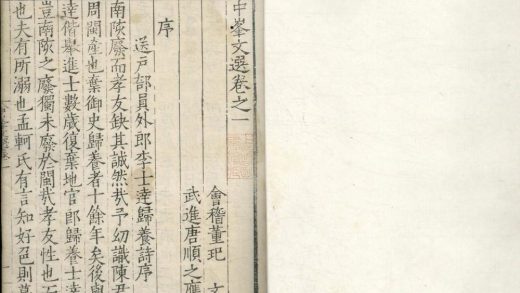 中峯文選卷之一
會稽董玘文
武進唐順之
序
送戶部員外郎李士達歸養詩序
南陔廢而孝友缺其誠然哉予幼識陳君
周閩產也棄御史歸養者十餘年矣後與
達偕舉進士數歲復棄地官郎歸養士達
豈南陔之廢獨未廢於閩哉孝友性也
也夫有所溺也孟軻氏有言知好色則慕